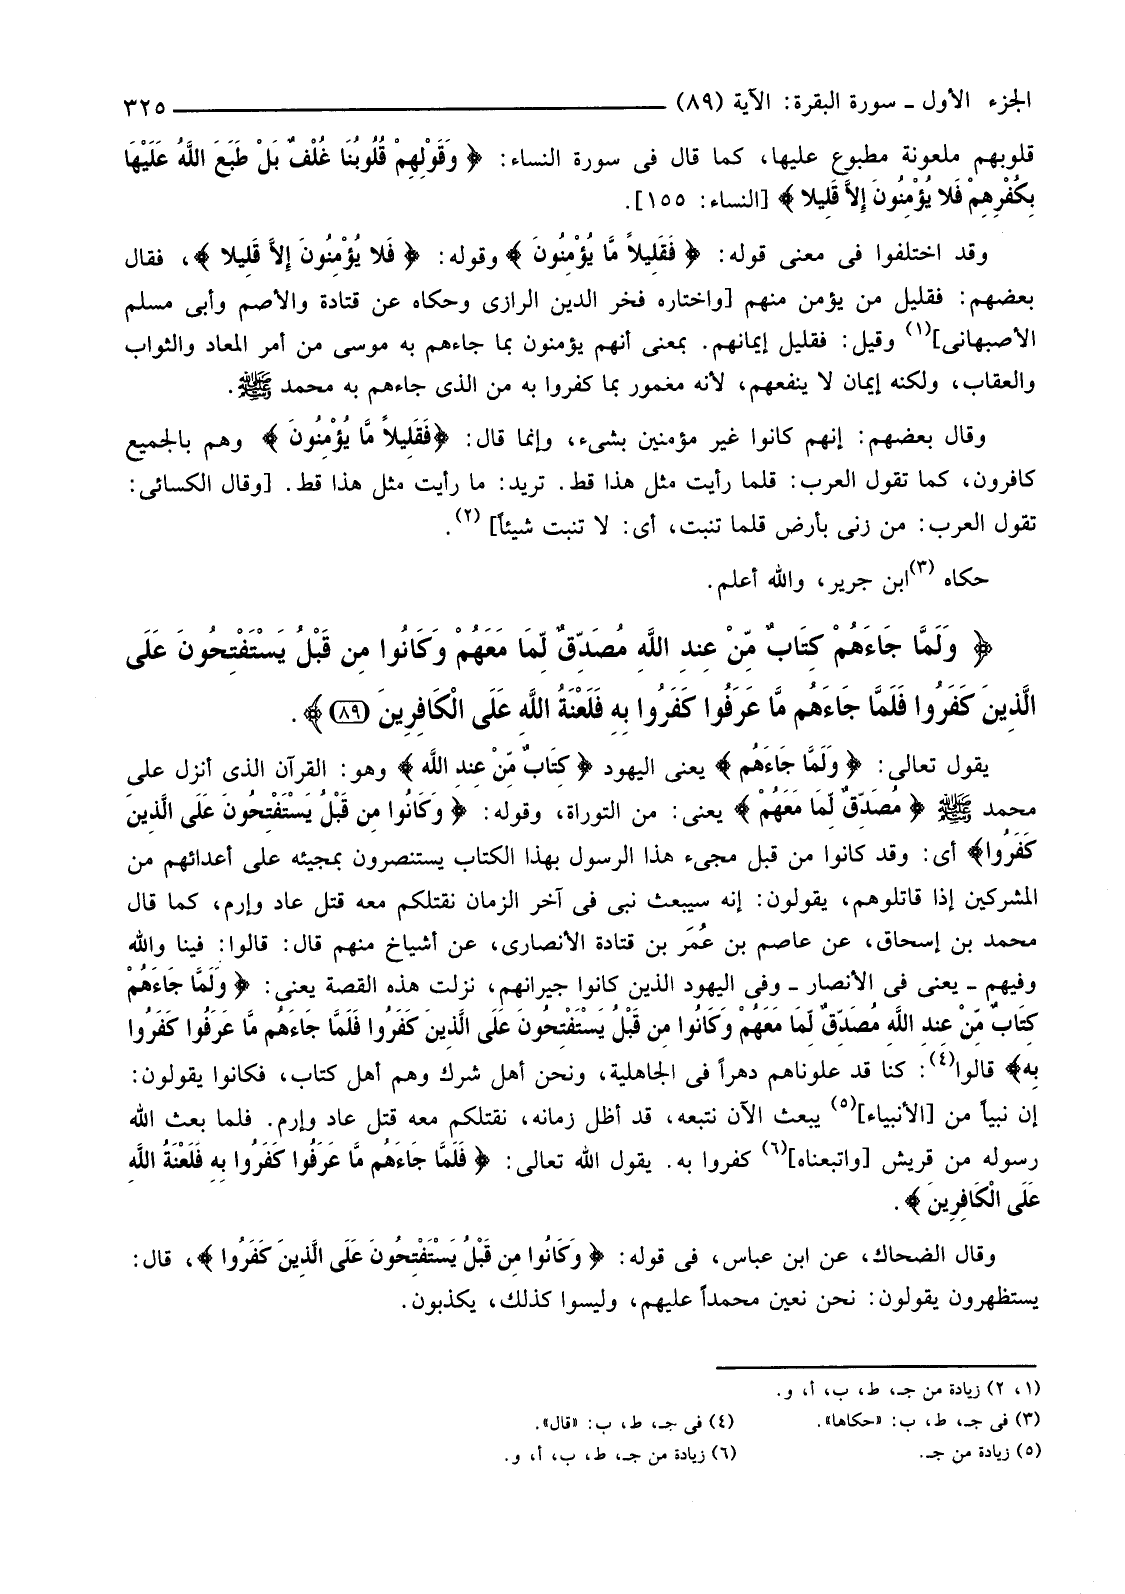 الجزء الأول ـ سورة البقرة: الآية (٨٩) ٣٢٥
قلوبهم ملعونة مطبوع عليها، كما قال فى سورة النساء: ﴿ وَقَوْلِهِمْ قُلُوبُنَا غُلْفٌ بَلْ طَبَعَ اللَّهُ عَلَيْهَا
بِكُفْرِهِمْ فَلا يُؤْمِنُونَ إِلاَّ قَلِيلا ﴾ [النساء: ١٥٥].
وقد اختلفوا فى معنى قوله: ﴿ فَقَلِيلاً مَّا يُؤْمِنُونَ ﴾ وقوله: ﴿ فَلا يُؤْمِنُونَ إِلاَّ قَلِيلا ﴾، فقال
بعضهم: فقليل من يؤمن منهم [واختاره فخر الدين الرازى وحكاه عن قتادة والأصم وأبى مسلم
الأصبهانى](١) وقيل: فقليل إيمانهم. بمعنى أنهم يؤمنون بما جاءهم به موسى من أمر المعاد والثواب
والعقاب، ولكنه إيمان لا ينفعهم، لأنه مغمور بما كفروا به من الذى جاءهم به محمد ﷺ.
وقال بعضهم: إنهم كانوا غير مؤمنين بشىء، وإنما قال: ﴿فَقَلِيلاً مَّا يُؤْمِنُونَ ﴾ وهم بالجميع
كافرون، كما تقول العرب: قلما رأيت مثل هذا قط. تريد: ما رأيت مثل هذا قط. [وقال الكسائى:
تقول العرب: من زنى بأرض قلما تنبت، أى: لا تنبت شيئاً] (٢).
حكاه (٣)ابن جرير، والله أعلم.
﴿ وَلَمَّا جَاءَهُمْ كِتَابٌ مِّنْ عِندِ اللَّهِ مُصَدِّقٌ لِّمَا مَعَهُمْ وَكَانُوا مِن قَبْلُ يَسْتَفْتِحُونَ عَلَى
الَّذِينَ كَفَرُوا فَلَمَّا جَاءَهُم مَّا عَرَفُوا كَفَرُوا بِهِ فَلَعْنَةُ اللَّهِ عَلَى الْكَافِرِينَ (٨٩) ﴾.
يقول تعالى: ﴿ وَلَمَّا جَاءَهُم ﴾ يعنى اليهود ﴿ كِتَابٌ مِّنْ عِندِ اللَّه ﴾ وهو: القرآن الذى أنزل على
محمد ﷺ ﴿ مُصَدِّقٌ لِّمَا مَعَهُمْ ﴾ يعنى: من التوراة، وقوله: ﴿ وَكَانُوا مِن قَبْلُ يَسْتَفْتِحُونَ عَلَى الَّذِينَ
كَفَرُوا﴾ أى: وقد كانوا من قبل مجىء هذا الرسول بهذا الكتاب يستنصرون بمجيئه على أعدائهم من
المشركين إذا قاتلوهم، يقولون: إنه سيبعث نبى فى آخر الزمان نقتلكم معه قتل عاد وإرم، كما قال
محمد بن إسحاق، عن عاصم بن عُمَر بن قتادة الأنصارى، عن أشياخ منهم قال: قالوا: فينا والله
وفيهم ـ يعنى فى الأنصار ـ وفى اليهود الذين كانوا جيرانهم، نزلت هذه القصة يعنى: ﴿ وَلَمَّا جَاءَهُمْ
كِتَابٌ مِّنْ عِندِ اللَّهِ مُصَدِّقٌ لِّمَا مَعَهُمْ وَكَانُوا مِن قَبْلُ يَسْتَفْتِحُونَ عَلَى الَّذِينَ كَفَرُوا فَلَمَّا جَاءَهُم مَّا عَرَفُوا كَفَرُوا
بِه﴾ قالوا(٤): كنا قد علوناهم دهراً فى الجاهلية، ونحن أهل شرك وهم أهل كتاب، فكانوا يقولون:
إن نبياً من [الأنبياء](٥) يبعث الآن نتبعه، قد أظل زمانه، نقتلكم معه قتل عاد وإرم. فلما بعث الله
رسوله من قريش [واتبعناه](٦) كفروا به. يقول الله تعالى: ﴿ فَلَمَّا جَاءَهُم مَّا عَرَفُوا كَفَرُوا بِهِ فَلَعْنَةُ اللَّهِ
عَلَى الْكَافِرِينَ ﴾.
وقال الضحاك، عن ابن عباس، فى قوله: ﴿ وَكَانُوا مِن قَبْلُ يَسْتَفْتِحُونَ عَلَى الَّذِينَ كَفَرُوا ﴾، قال:
يستظهرون يقولون: نحن نعين محمداً عليهم، وليسوا كذلك، يكذبون.
(١، ٢) زيادة من جـ، ط، ب، أ، و.
(٣) فى جـ، ط، ب: «حكاها». (٤) فى جـ، ط، ب: «قال».
(٥) زيادة من جـ. (٦) زيادة من جـ، ط، ب، أ، و.